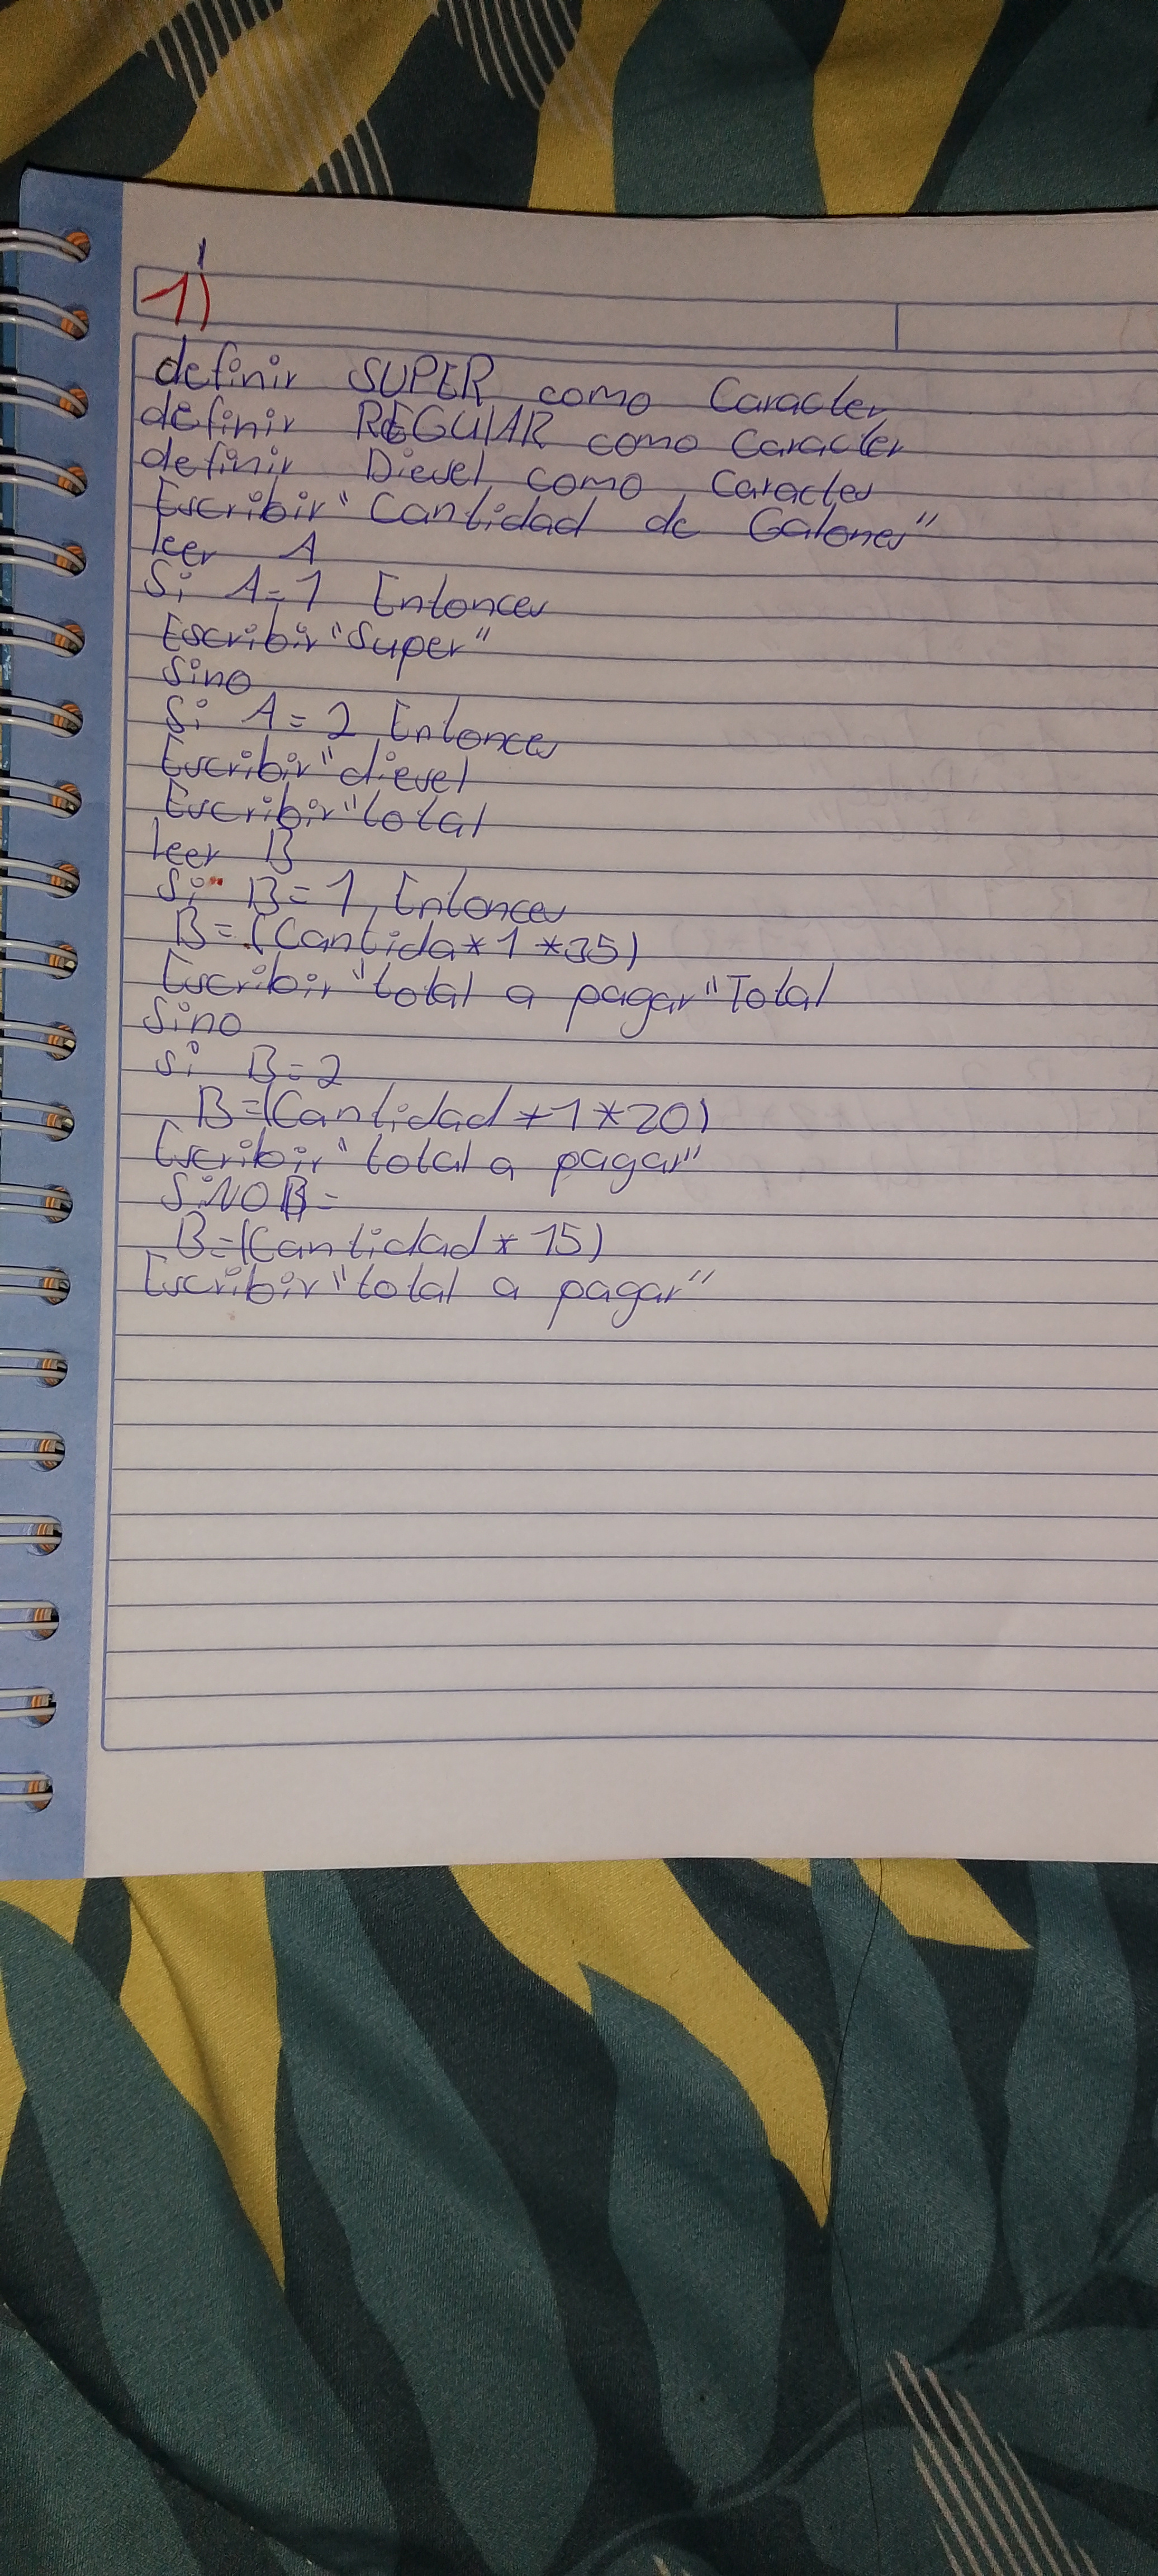 1)
definir SUPER como Caracter
definir REGULAR como Caracter
definir Diesel como Caracter
Escribir "Cantidad de Galones"
leer A
Si A=1 Entonces
Escribir "Super"
Sino
Si A=2 Entonces
Escribir "diesel
Escribir "total
leer B
Si B=1 Entonces
B=(Cantida*1*35)
Escribir "total a pagar" Total
Sino
si B=2
B=(Cantidad*1*20)
Escribir "total a pagar"
SiNO B=
B=(Cantidad*15)
Escribir "total a pagar"